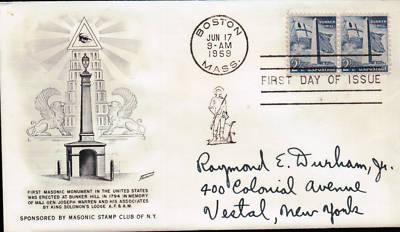 BOSTON
JUN 17
9-AM
1959
MASS.
FIRST DAY OF ISSUE
BUNKER
2½¢
FIRST MASONIC MONUMENT IN THE UNITED STATES
WAS ERECTED AT BUNKER HILL IN 1794 IN MEMORY
OF MAJ. GEN. JOSEPH WARREN AND HIS ASSOCIATES
BY KING SOLOMON'S LODGE A.F. & A.M.
SPONSORED BY MASONIC STAMP CLUB OF N.Y.
Raymond E. Durham, Jr.
400 Colonial Avenue
Vestal, New York